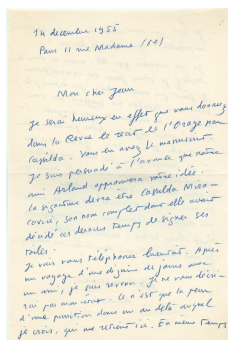 14 décembre 1955
Paris 11 rue Madame (6e)
Mon cher Jean
Je serai heureux en effet que vous donniez
dans la Revue le récit de l'Orage par
Casilda. Vous en avez le manuscrit
Je suis persuadé à l'avance que notre
ami Arland approuvera votre idée.
La signature devra être Casilda Mira-
covici, son nom complet dont elle avait
décidé ces derniers temps de signer ses
toiles.
Je vais vous téléphoner bientôt. Après
un voyage d'une dizaine de jours avec
un ami, je suis revenu. Je ne vous
rai pas mon Ce n'est que la peur
d'une punition dans un au delà auquel
je crois, qui me retient ici. En même temps